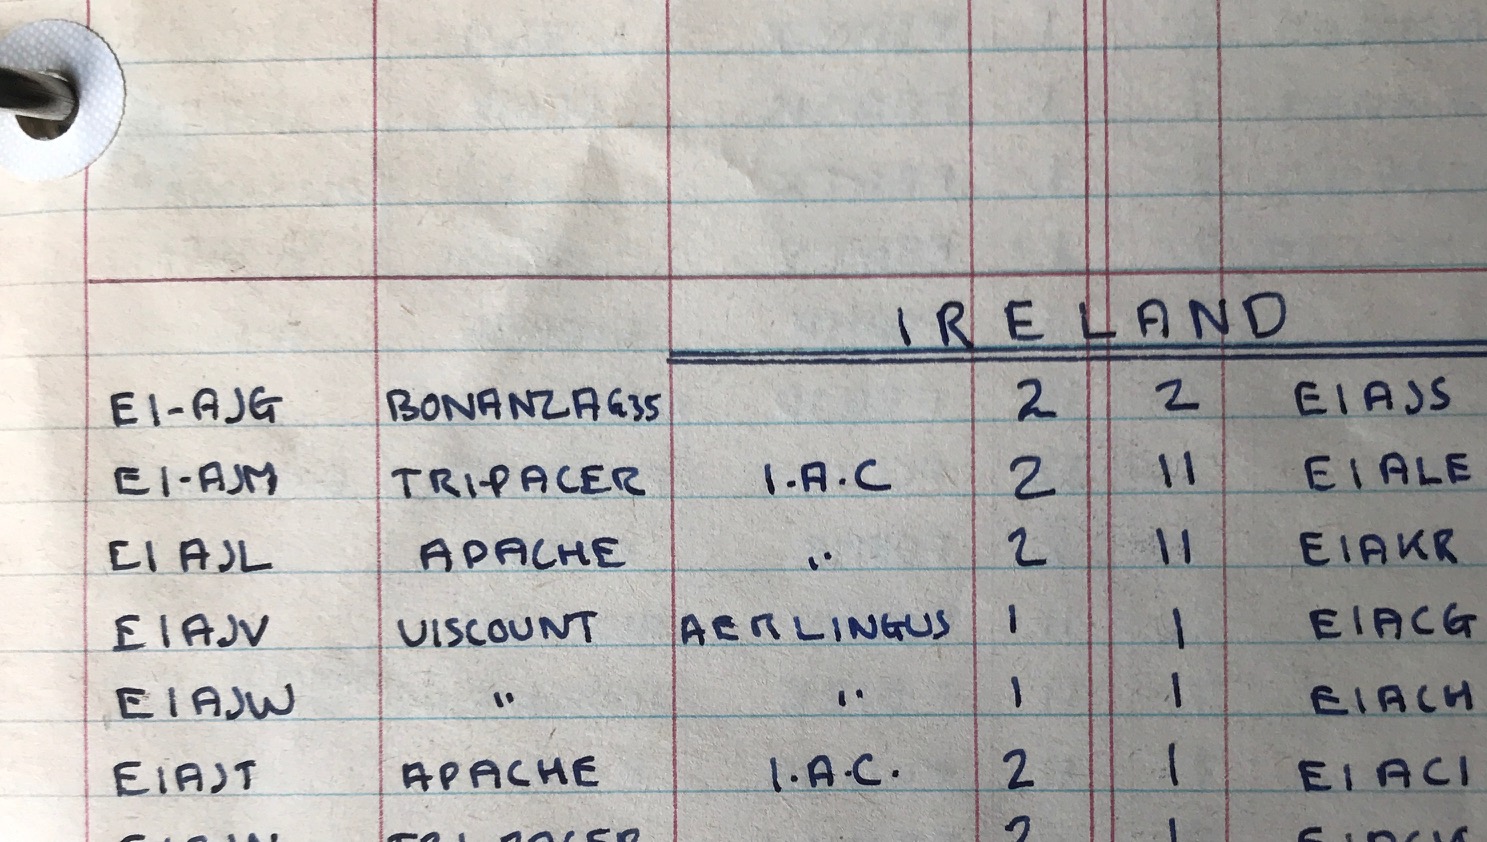 IRELAND
EI-AJG BONANZA G35 2 2 EIAJS
EI-AJM TRI-PACER I.A.C 2 11 EIALE
EI AJL APACHE " 2 11 EIAKR
EIAJV VISCOUNT AER LINGUS 1 1 EIACG
EIAJW " " 1 1 EIACH
EIAJT APACHE I.A.C. 2 1 EIACI
TRI-PACER 2 1